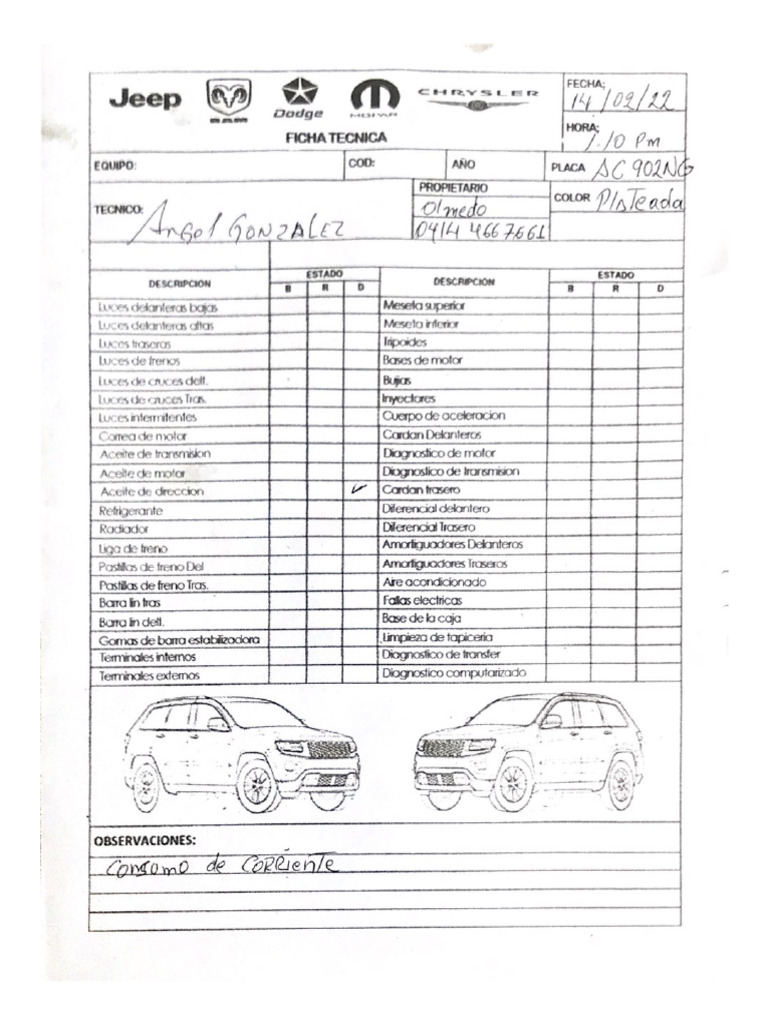 Jeep RAM Dodge MOPAR CHRYSLER
FECHA; 14/02/22
FICHA TECNICA
HORA; 1:10 Pm
EQUIPO: COD: AÑO PLACA AC902NG
TECNICO: Angel GONZALEZ PROPIETARIO Olmedo COLOR PlaTeada
0414 4667661
DESCRIPCION ESTADO DESCRIPCION ESTADO
B R D B R D
Luces delanteras bajas Meseta superior
Luces delanteras altas Meseta inferior
Luces traseras Tripoides
Luces de frenos Bases de motor
Luces de cruces delt. Bujias
Luces de cruces Tras. Inyectores
Luces intermitentes Cuerpo de aceleracion
Correa de motor Cardan Delanteros
Aceite de transmision Diagnostico de motor
Aceite de motor Diagnostico de transmision
Aceite de direccion ✓ Cardan trasero
Refrigerante Diferencial delantero
Radiador Diferencial Trasero
Liga de freno Amortiguadores Delanteros
Pastillas de freno Del Amortiguadores Traseros
Pastillas de freno Tras. Aire acondicionado
Barra lin tras Fallas electricas
Barra lin delt. Base de la caja
Gomas de barra estabilizadora Limpieza de tapiceria
Terminales internos Diagnostico de transfer
Terminales externos Diagnostico computarizado
OBSERVACIONES:
Consumo de CORRiente